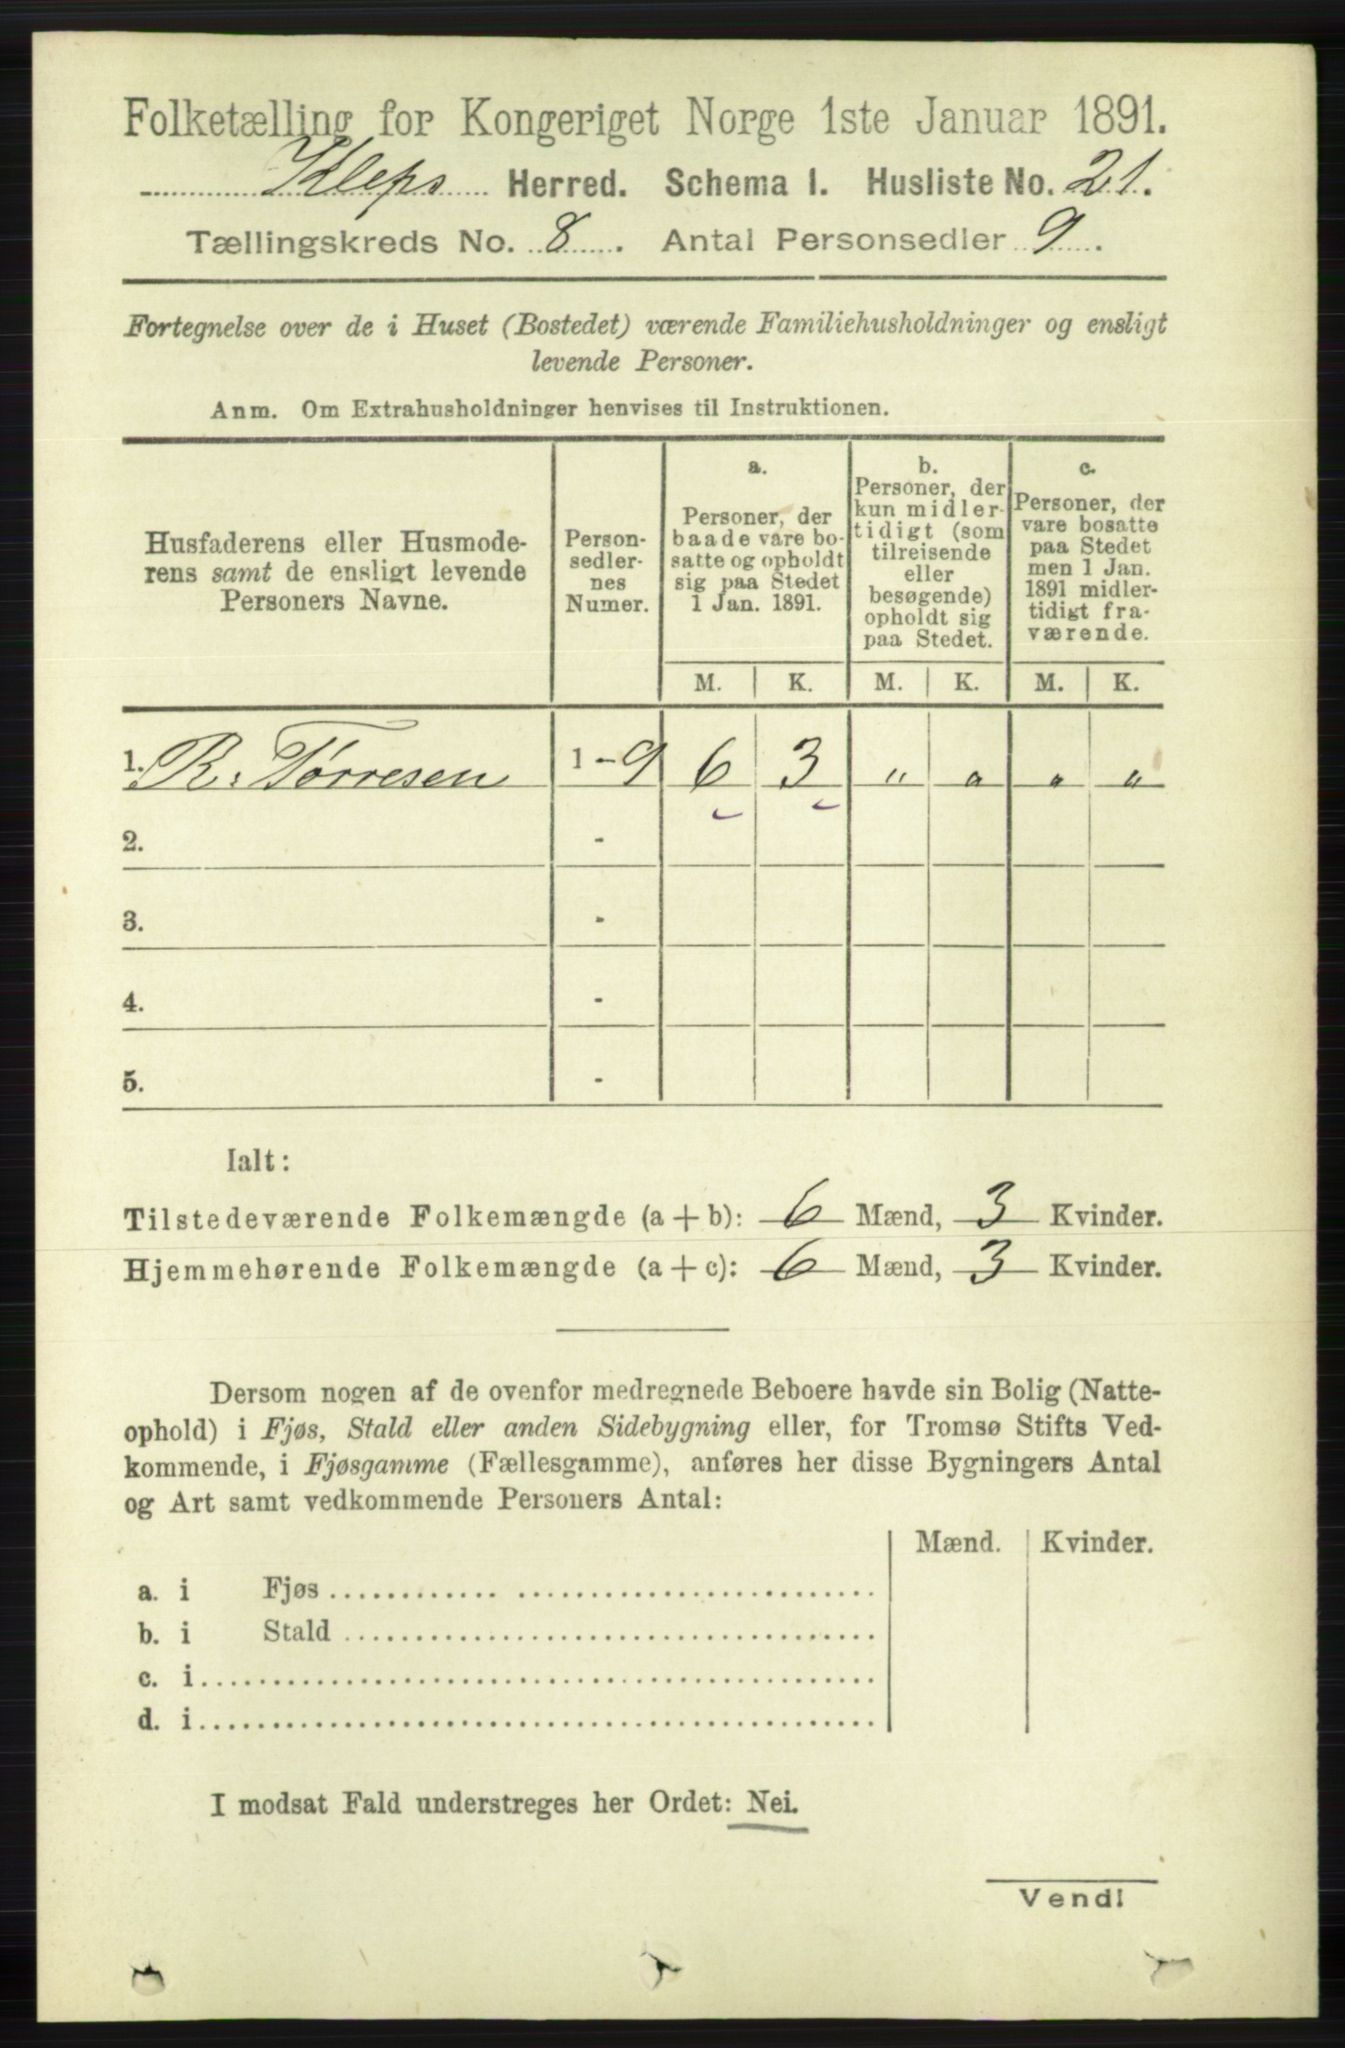 Folketælling for Kongeriget Norge 1ste Januar 1891.
Kleps Herred. Schema I. Husliste No. 21.
Tællingskreds No. 8. Antal Personsedler 9.
Fortegnelse over de i Huset (Bostedet) værende Familiehusholdninger og ensligt
levende Personer.
Anm. Om Extrahusholdninger henvises til Instruktionen.
Husfaderens eller Husmode-
rens samt de ensligt levende
Personers Navne.
Person-
sedler-
nes
Numer.
a.
Personer, der
baade vare bo-
satte og opholdt
sig paa Stedet
1 Jan. 1891.
b.
Personer, der
kun midler-
tidigt (som
tilreisende
eller
besøgende)
opholdt sig
paa Stedet.
c.
Personer, der
vare bosatte
paa Stedet
men 1 Jan.
1891 midler-
tidigt fra-
værende.
M. K. M. K. M. K.
1. R. Tørresen 1-9 6 3 " " " "
2. -
3. -
4. -
5. -
Ialt:
Tilstedeværende Folkemængde (a + b): 6 Mænd, 3 Kvinder.
Hjemmehørende Folkemængde (a + c): 6 Mænd, 3 Kvinder.
Dersom nogen af de ovenfor medregnede Beboere havde sin Bolig (Natte-
ophold) i Fjøs, Stald eller anden Sidebygning eller, for Tromsø Stifts Ved-
kommende, i Fjøsgamme (Fællesgamme), anføres her disse Bygningers Antal
og Art samt vedkommende Personers Antal:
Mænd. Kvinder.
a. i Fjøs
b. i Stald
c. i
d. i
I modsat Fald understreges her Ordet: Nei.
Vend!